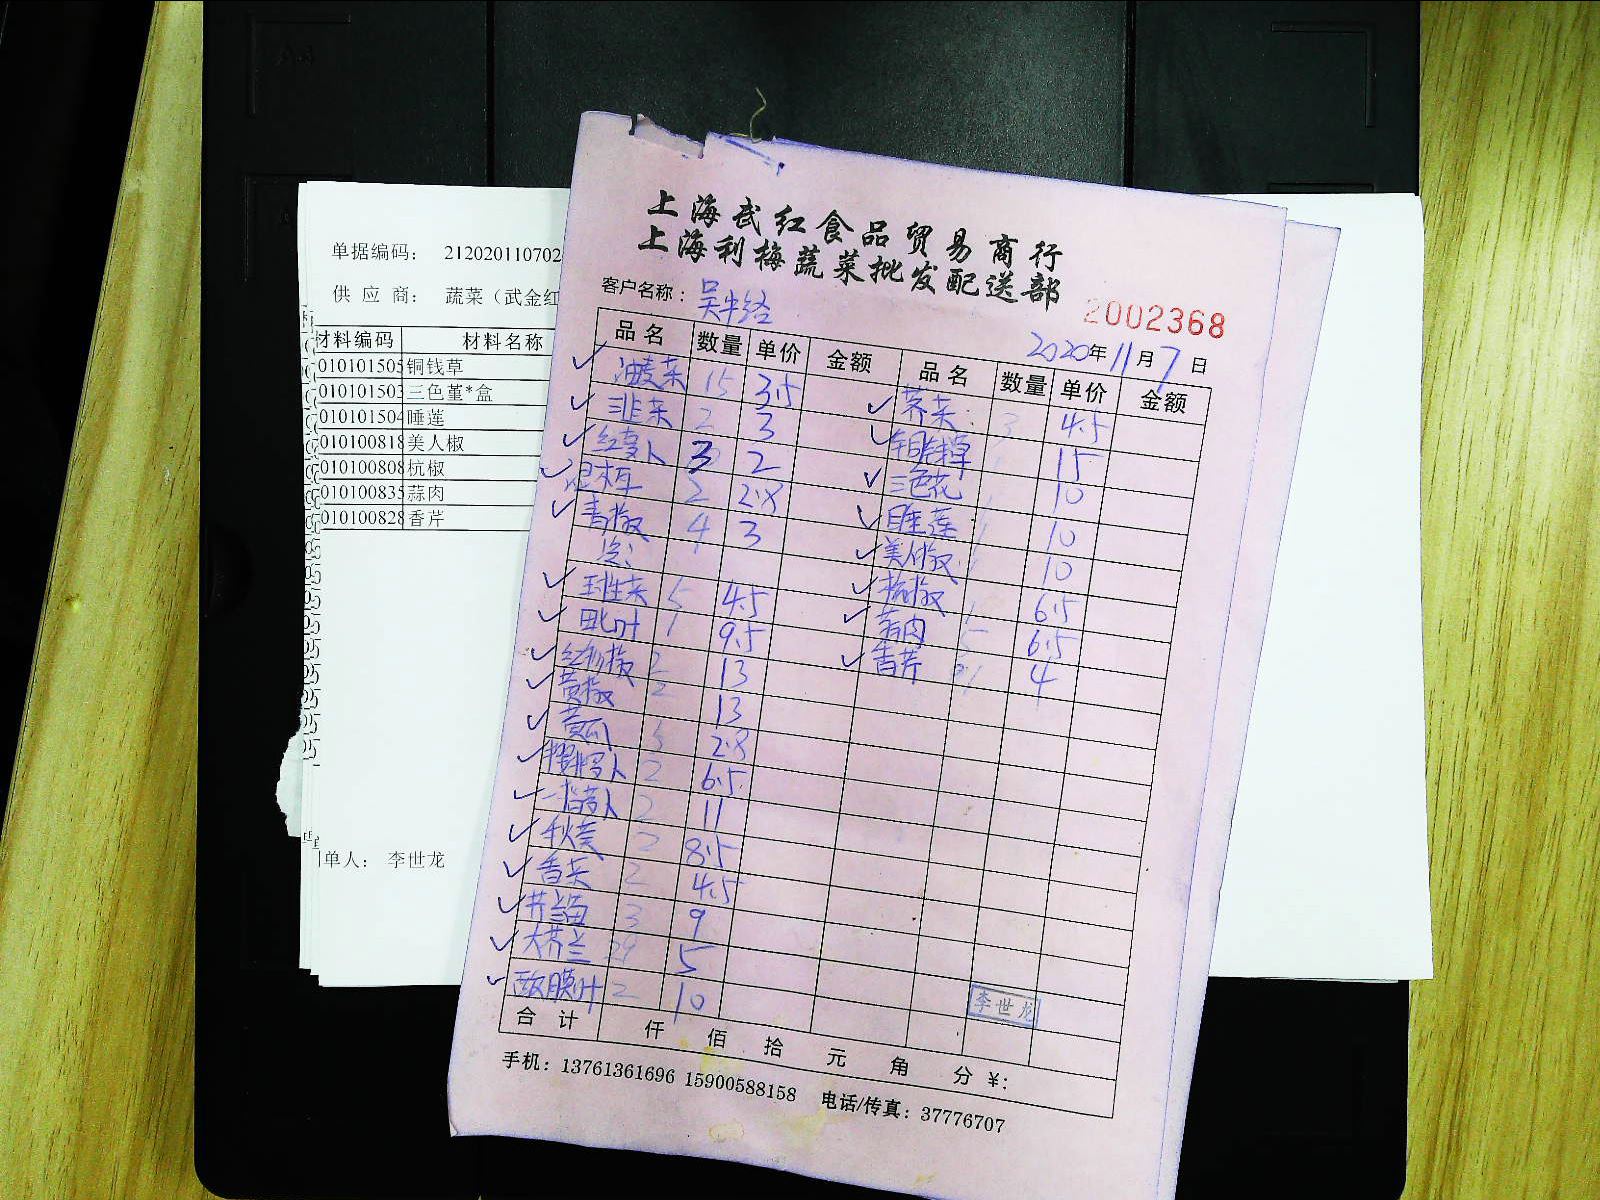 单据编码： 212020110702
供 应 商： 蔬菜（武金红
材料编码 材料名称
010101505 铜钱草
010101503 三色堇*盒
010101504 睡莲
010100818 美人椒
010100808 杭椒
010100835 蒜肉
010100828 香芹
单人： 李世龙
上海武红食品贸易商行
上海利梅蔬菜批发配送部
客户名称：
2002368
2020年11月7日
品名 数量 单价 金额 品名 数量 单价 金额
油麦菜 15 3.5
韭菜 2 3
红萝卜 3 2
2 2.8
青椒 4 3
球生菜 5 4.5
1 9.5
2 13
黄椒 2 13
黄瓜 5 2.8
樱桃萝卜 2 6.5
2 11
秋葵 2 8.5
香菜 2 4.5
芥兰苗 3 9
大芥兰 5
2 10
荠菜 3 4.5
铜钱草 1 15
三色花 1 10
睡莲 1 10
美人椒 1 10
杭椒 1 6.5
蒜肉 5 6.5
香芹 4
李世龙
合 计 仟 佰 拾 元 角 分 ¥:
手机：13761361696 15900588158 电话/传真：37776707